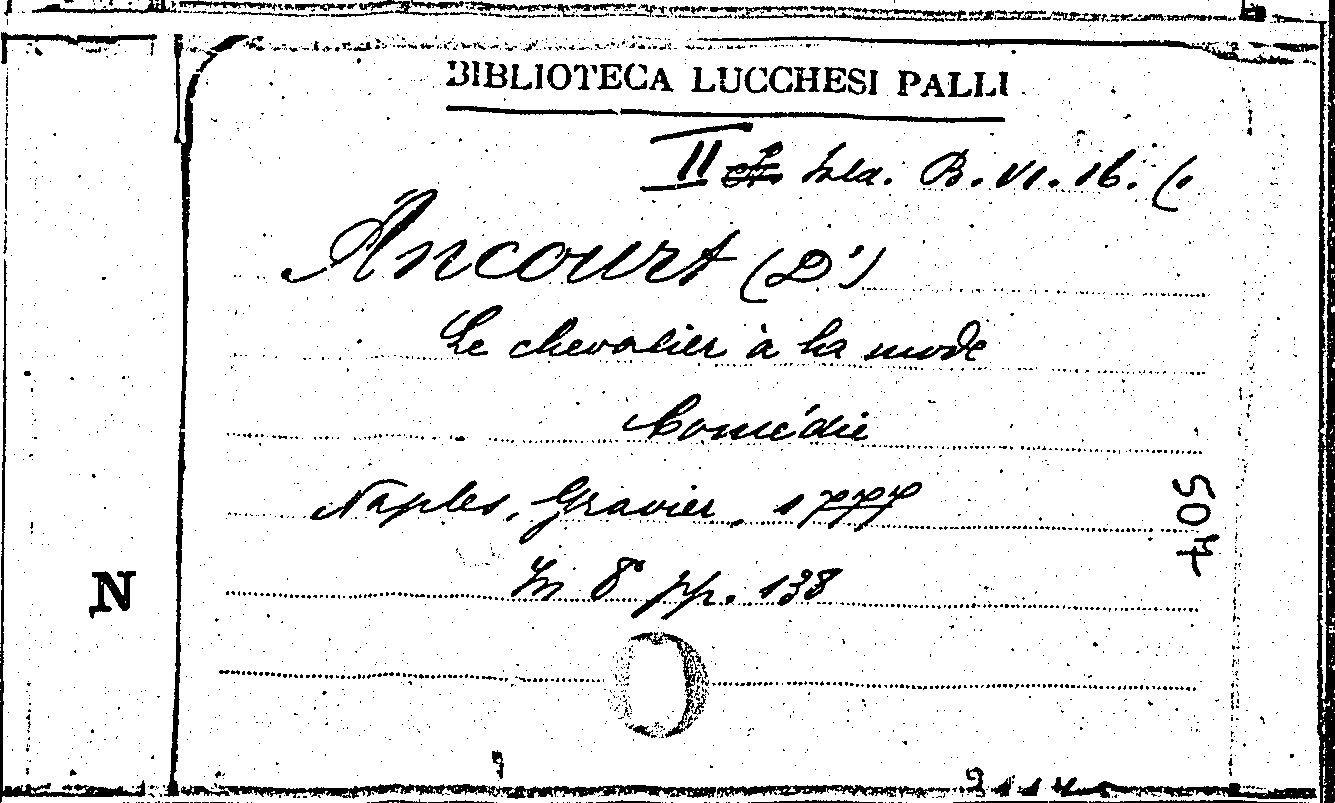 BIBLIOTECA LUCCHESI PALLI
II Sala. B. VI. 16. (
Ancourt (D')
Le chevalier à la mode
Comédie
Naples, Gravier, 1777
405
In 8° pp. 138
N